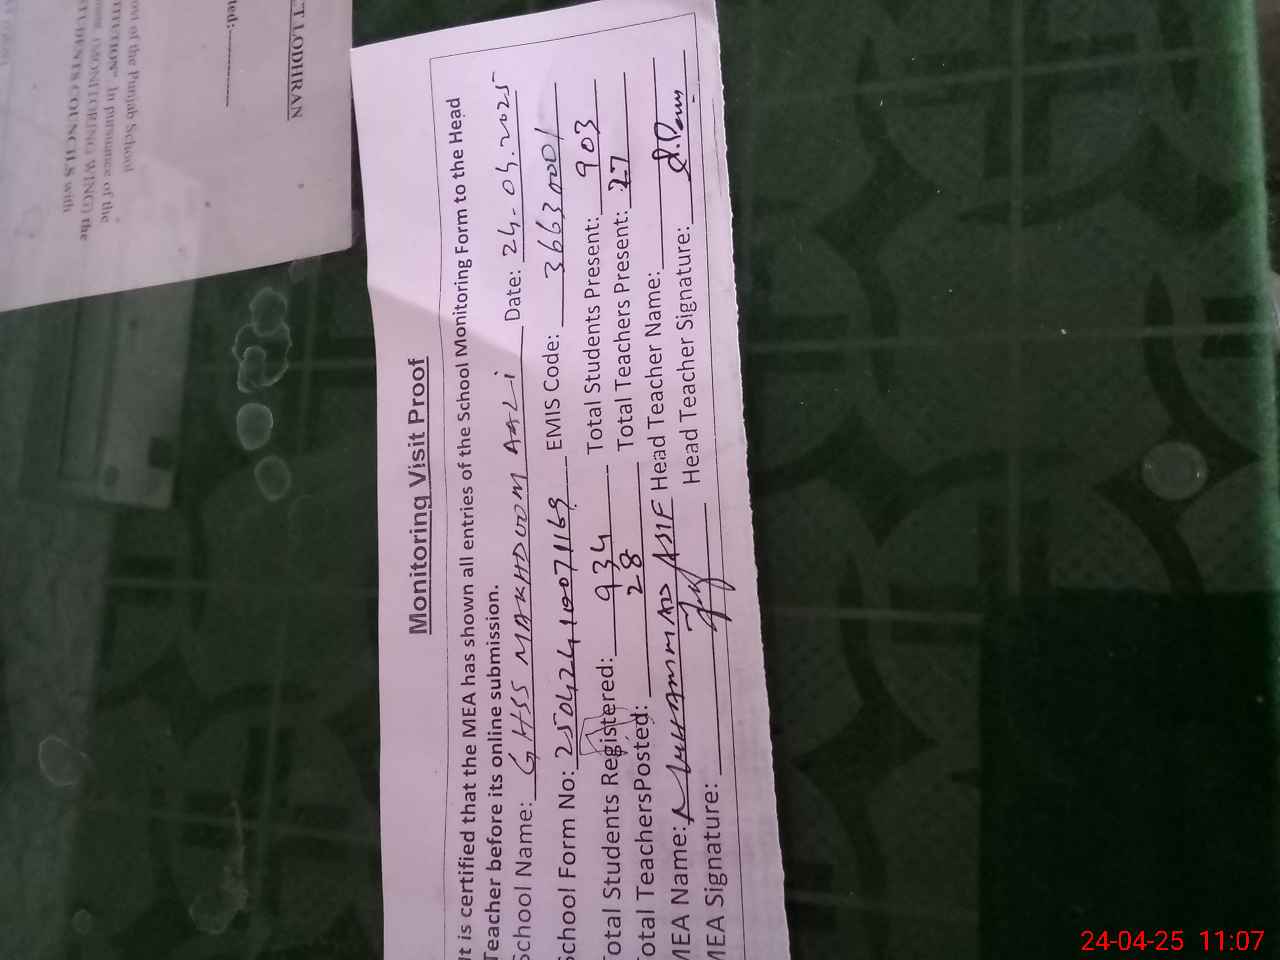 CT LODHRAN
ted:
of the Punjab School
In pursuance of the
(MONITORING WING) the
STUDENTS COUNCILS with
Monitoring Visit Proof
It is certified that the MEA has shown all entries of the School Monitoring Form to the Head
Teacher before its online submission.
School Name: GHSS MAKHDOOM AALI Date: 24-04-2025
School Form No: 25042410071169 EMIS Code: 36630001
Total Students Registered: 934 Total Students Present: 903
Total TeachersPosted: 28 Total Teachers Present: 27
MEA Name: Muhammad ASIF Head Teacher Name:
MEA Signature: Head Teacher Signature:
24-04-25 11:07